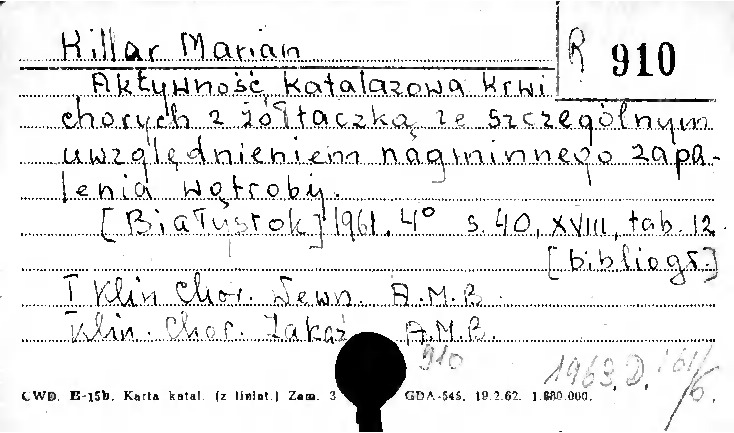 Hillar Marian
R 910
Aktywność katalazowa krwi
chorych z żółtaczką ze szczególnym
uwzględnieniem nagminnego zapa-
lenia wątroby.
[Białystok] 1961. 4° s. 40, XVIII, tab. 12
[bibliogr.]
I Klin Chor. Wewn. A.M.B.
Klin. Chor. Zakaź A.M.B.
910
1963. D. 161/6.
CWD. E-15b. Karta katal. (z liniat.) Zam. 3 GDA-545. 19.2.62. 1.880.000.